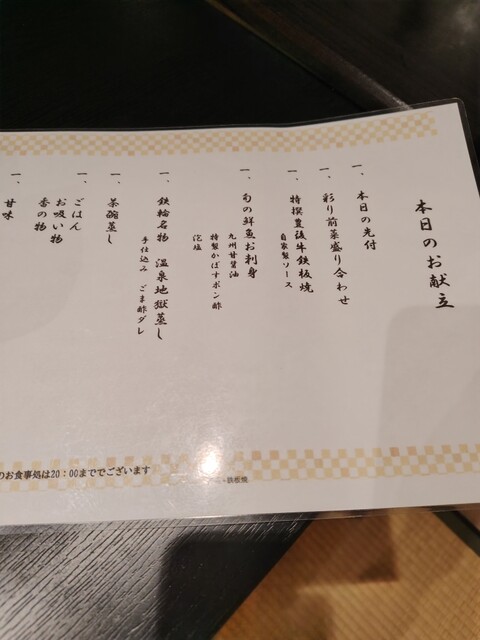 本日のお献立
一、本日の先付
一、彩り前菜盛り合わせ
一、特撰豊後牛鉄板焼
自家製ソース
一、旬の鮮魚お刺身
九州甘醤油
特製かぼすポン酢
泡塩
一、鉄輪名物 温泉地獄蒸し
手仕込み ごま酢ダレ
一、茶碗蒸し
一、ごはん
お吸い物
香の物
一、甘味
のお食事処は20：00まででございます
・鉄板焼